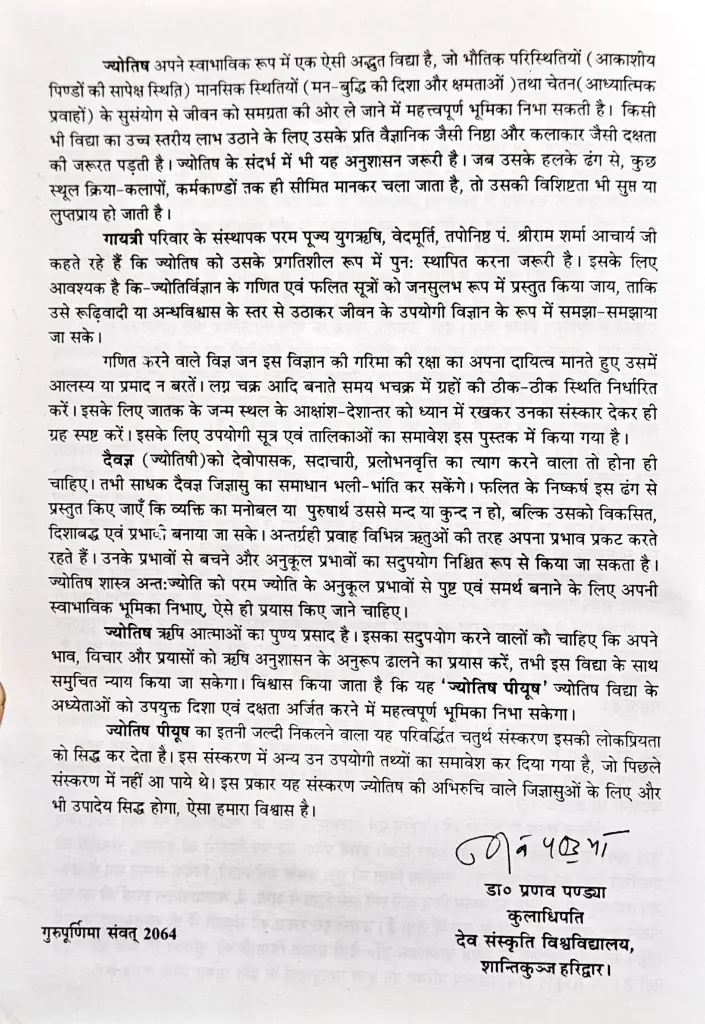 ज्योतिष अपने स्वाभाविक रूप में एक ऐसी अद्भुत विद्या है, जो भौतिक परिस्थितियों (आकाशीय
पिण्डों की सापेक्ष स्थिति) मानसिक स्थितियों (मन-बुद्धि की दिशा और क्षमताओं )तथा चेतन(आध्यात्मिक
प्रवाहों) के सुसंयोग से जीवन को समग्रता की ओर ले जाने में महत्त्वपूर्ण भूमिका निभा सकती है। किसी
भी विद्या का उच्च स्तरीय लाभ उठाने के लिए उसके प्रति वैज्ञानिक जैसी निष्ठा और कलाकार जैसी दक्षता
की जरूरत पड़ती है। ज्योतिष के संदर्भ में भी यह अनुशासन जरूरी है। जब उसके हलके ढंग से, कुछ
स्थूल क्रिया-कलापों, कर्मकाण्डों तक ही सीमित मानकर चला जाता है, तो उसकी विशिष्टता भी सुप्त या
लुप्तप्राय हो जाती है।
गायत्री परिवार के संस्थापक परम पूज्य युगऋषि, वेदमूर्ति, तपोनिष्ठ पं. श्रीराम शर्मा आचार्य जी
कहते रहे हैं कि ज्योतिष को उसके प्रगतिशील रूप में पुन: स्थापित करना जरूरी है। इसके लिए
आवश्यक है कि-ज्योतिर्विज्ञान के गणित एवं फलित सूत्रों को जनसुलभ रूप में प्रस्तुत किया जाय, ताकि
उसे रूढ़िवादी या अन्धविश्वास के स्तर से उठाकर जीवन के उपयोगी विज्ञान के रूप में समझा-समझाया
जा सके।
गणित करने वाले विज्ञ जन इस विज्ञान की गरिमा की रक्षा का अपना दायित्व मानते हुए उसमें
आलस्य या प्रमाद न बरतें। लग्न चक्र आदि बनाते समय भचक्र में ग्रहों की ठीक-ठीक स्थिति निर्धारित
करें। इसके लिए जातक के जन्म स्थल के आक्षांश-देशान्तर को ध्यान में रखकर उनका संस्कार देकर ही
ग्रह स्पष्ट करें। इसके लिए उपयोगी सूत्र एवं तालिकाओं का समावेश इस पुस्तक में किया गया है।
दैवज्ञ (ज्योतिषी)को देवोपासक, सदाचारी, प्रलोभनवृत्ति का त्याग करने वाला तो होना ही
चाहिए। तभी साधक दैवज्ञ जिज्ञासु का समाधान भली-भांति कर सकेंगे। फलित के निष्कर्ष इस ढंग से
प्रस्तुत किए जाएँ कि व्यक्ति का मनोबल या पुरुषार्थ उससे मन्द या कुन्द न हो, बल्कि उसको विकसित,
दिशाबद्ध एवं प्रभावी बनाया जा सके। अन्तर्ग्रही प्रवाह विभिन्न ऋतुओं की तरह अपना प्रभाव प्रकट करते
रहते हैं। उनके प्रभावों से बचने और अनुकूल प्रभावों का सदुपयोग निश्चित रूप से किया जा सकता है।
ज्योतिष शास्त्र अन्त:ज्योति को परम ज्योति के अनुकूल प्रभावों से पुष्ट एवं समर्थ बनाने के लिए अपनी
स्वाभाविक भूमिका निभाए, ऐसे ही प्रयास किए जाने चाहिए।
ज्योतिष ऋषि आत्माओं का पुण्य प्रसाद है। इसका सदुपयोग करने वालों को चाहिए कि अपने
भाव, विचार और प्रयासों को ऋषि अनुशासन के अनुरूप ढालने का प्रयास करें, तभी इस विद्या के साथ
समुचित न्याय किया जा सकेगा। विश्वास किया जाता है कि यह 'ज्योतिष पीयूष' ज्योतिष विद्या के
अध्येताओं को उपयुक्त दिशा एवं दक्षता अर्जित करने में महत्वपूर्ण भूमिका निभा सकेगा।
ज्योतिष पीयूष का इतनी जल्दी निकलने वाला यह परिवर्द्धित चतुर्थ संस्करण इसकी लोकप्रियता
को सिद्ध कर देता है। इस संस्करण में अन्य उन उपयोगी तथ्यों का समावेश कर दिया गया है, जो पिछले
संस्करण में नहीं आ पाये थे। इस प्रकार यह संस्करण ज्योतिष की अभिरुचि वाले जिज्ञासुओं के लिए और
भी उपादेय सिद्ध होगा, ऐसा हमारा विश्वास है।
डा० प्रणव पण्ड्या
कुलाधिपति
गुरुपूर्णिमा संवत् 2064
देव संस्कृति विश्वविद्यालय,
शान्तिकुञ्ज हरिद्वार।